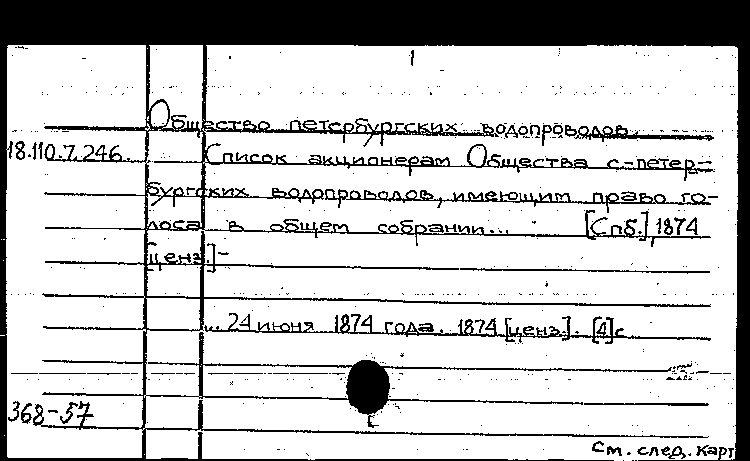 Общество петербургских водопроводов.
18.110.7.246. Список акционерам Общества с.-петер-
бургских водопроводов, имеющим право го-
лоса в общем собрании... [Спб.], 1874
[ценз.]-
... 24 июня 1874 года. 1874 [ценз]. [4]с
368-57
См. след. карт